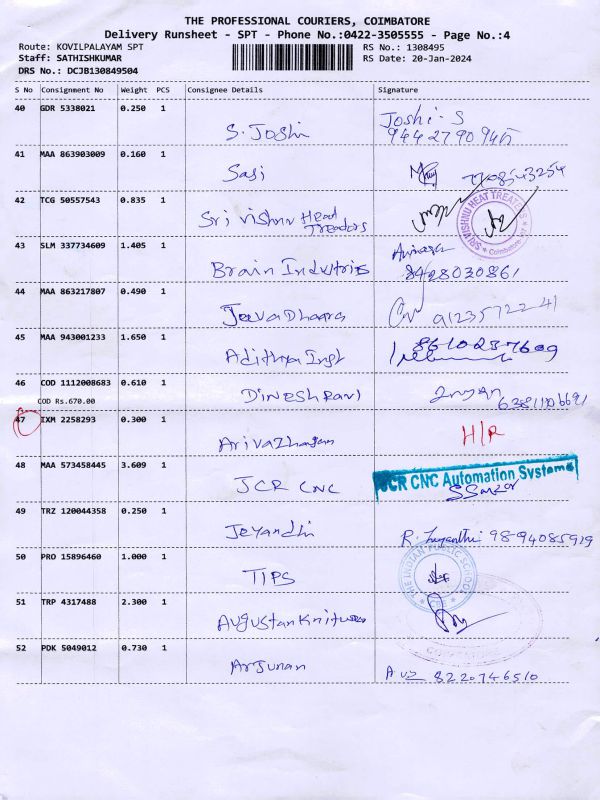 THE PROFESSIONAL COURIERS, COIMBATORE
Delivery Runsheet - SPT - Phone No.:0422-3505555 - Page No.:4
Route: KOVILPALAYAM SPT RS No.: 1308495
Staff: SATHISHKUMAR RS Date: 20-Jan-2024
DRS No.: DCJB130849504
S No Consignment No Weight PCS Consignee Details Signature
40 GDR 5338021 0.250 1 S. Joshi Joshi - S
9442790945
41 MAA 863903009 0.160 1 Sasi 7708543254
42 TCG 50557543 0.835 1 Sri Vishnu Heat Treators
SRI VISHNU HEAT TREATERS
Coimbatore
43 SLM 337734609 1.405 1 Brain Industries
8428030861
44 MAA 863217807 0.490 1 Jeeva Dhaara 9123572241
45 MAA 943001233 1.650 1 Adithya Inst 8610237609
46 COD 1112008683 0.610 1 Dinesh Ravi
COD Rs.670.00
47 IXM 2258293 0.300 1 Arivazhagan H/R
48 MAA 573458445 3.609 1 JCR CNC JCR CNC Automation Systems
49 TRZ 120044358 0.250 1 Jeyandhi R. Jayanthi 9894085919
50 PRO 15896460 1.000 1 TIPS
THE INDIAN PUBLIC SCHOOL
51 TRP 4317488 2.300 1 Augustan Knitwear
52 PDK 5049012 0.730 1 Arjunan 8220746510